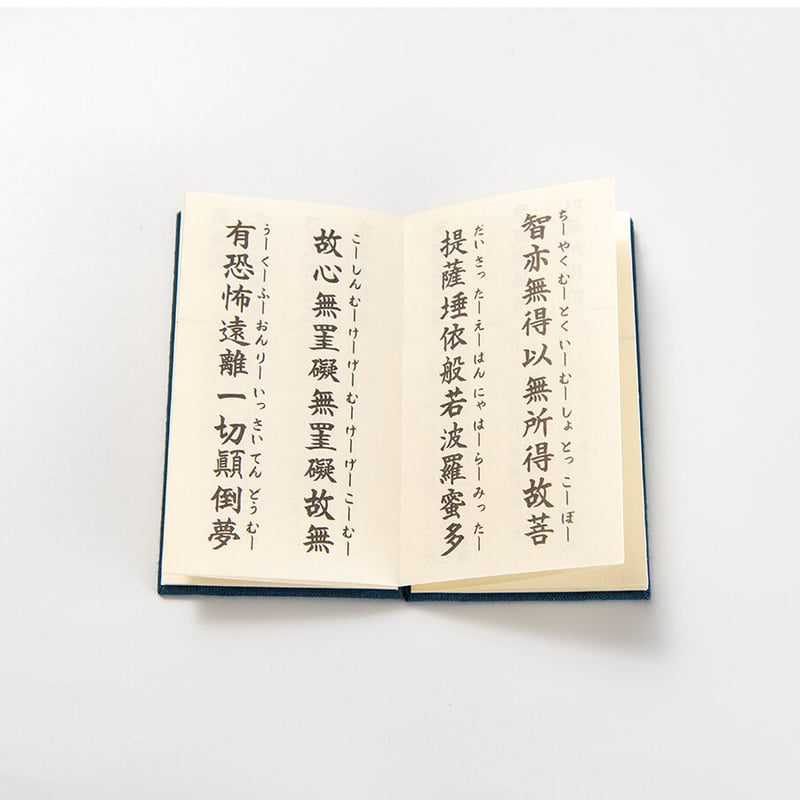 智亦無得以無所得故菩
ちーやくむーとくいーむーしょとっこーぼー
提薩埵依般若波羅蜜多
だいさったーえーはんにゃはーらーみったー
故心無罣礙無罣礙故無
こーしんむーけーげーむーけーげーこーむー
有恐怖遠離一切顛倒夢
うーくーふーおんりーいっさいてんどうむー